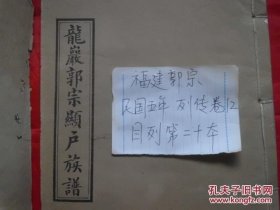 龍巖郭宗顯户族譜
福建郭宗
民国五年 列传卷12
目列第二十本